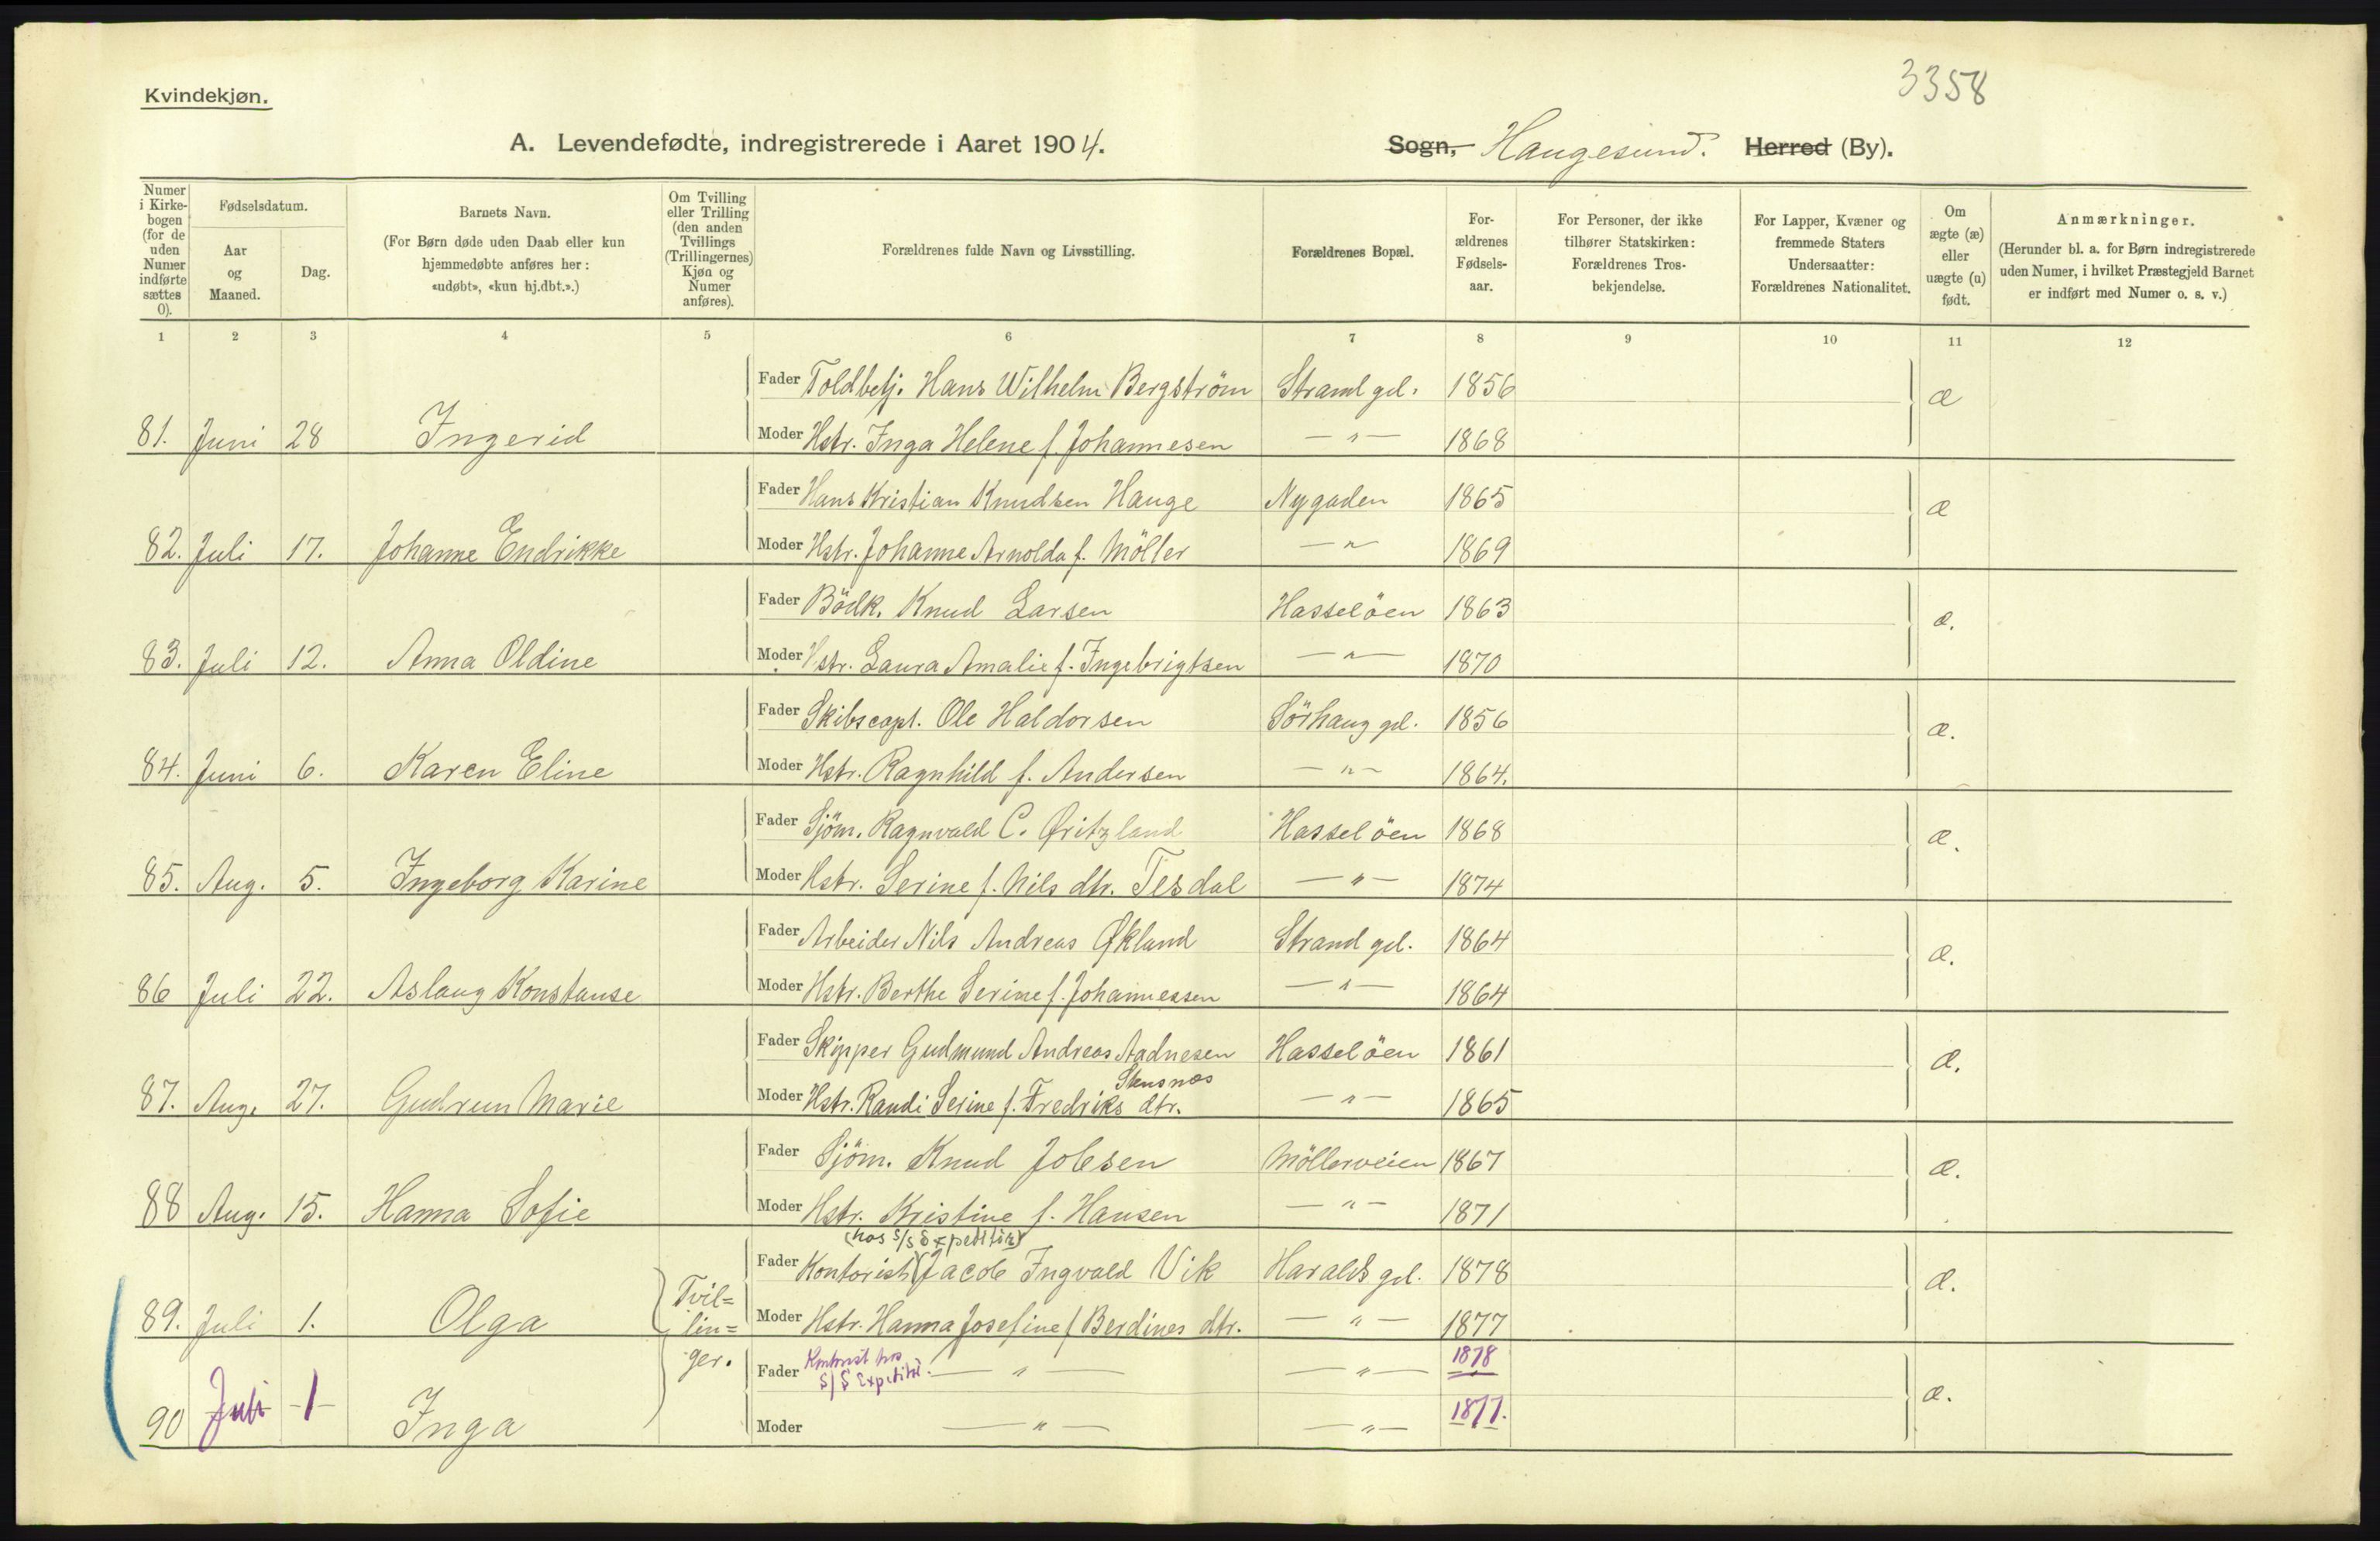 3358
Kvindekjøn.
A. Levendefødte, indregistrerede i Aaret 1904. Sogn, Haugesund. Herred (By).
Numer i Kirkebogen (for de uden Numer indførte sættes 0).
Fødselsdatum.
Aar og Maaned.
Dag.
Barnets Navn.
(For Børn døde uden Daab eller kun hjemmedøbte anføres her: «udøbt», «kun hj.dbt.».)
Om Tvilling eller Trilling (den anden Tvillings (Trillingernes) Kjøn og Numer anføres).
Forældrenes fulde Navn og Livsstilling.
Forældrenes Bopæl.
Forældrenes Fødselsaar.
For Personer, der ikke tilhører Statskirken: Forældrenes Trosbekjendelse.
For Lapper, Kvæner og fremmede Staters Undersaatter: Forældrenes Nationalitet.
Om ægte (æ) eller uægte (u) født.
Anmærkninger.
(Herunder bl. a. for Børn indregistrerede uden Numer, i hvilket Præstegjeld Barnet er indført med Numer o. s. v.)
1 2 3 4 5 6 7 8 9 10 11 12
Fader Toldbetj. Hans Wilhelm Bergström Strand gd. 1856 æ
81. Juni 28 Ingerid Moder Hstr. Inga Helene f. Johannesen — " — 1868
Fader Hans Kristian Knudsen Hauge Nygaden 1865 æ
82. Juli 17. Johanne Endrikke Moder Hstr. Johanne Arnolda f. Möller — " — 1869
Fader Bödk. Knud Larsen Hasselöen 1863 æ.
83. Juli 12. Anna Oldine Moder Hstr. Laura Amalie f. Ingebrigtsen — " — 1870
Fader Skibscapt. Ole Haldorsen Sörhaug gd. 1856 æ.
84. Juni 6. Karen Eline Moder Hstr. Ragnhild f. Andersen — " — 1864.
Fader Sjöm. Ragnvald C. Øritzland Hasselöen 1868 æ.
85. Aug. 5. Ingeborg Karine Moder Hstr. Serine f. Nils dtr. Tesdal — " — 1874
Fader Arbeider Nils Andreas Økland Strand gd. 1864 æ.
86 Juli 22. Aslaug Konstanse Moder Hstr. Berthe Serine f. Johannessen — " — 1864
Fader Skipper Gudmund Andreas Aadnesen Hasselöen 1861 æ.
Stensnæs
87. Aug. 27. Gudrun Marie Moder Hstr. Randi Serine f. Fredriks dtr. — " — 1865
Fader Sjöm. Knud Jolesen Möllerveien 1867 æ.
88 Aug. 15. Hanna Sofie Moder Hstr. Kristine f. Hansen — " — 1871
(hos S/S Expedition)
Fader Kontorist Jacob Ingvald Vik Haralds gd. 1878 æ.
89. Juli 1. Olga Tvillinger. Moder Hstr. Hanna Josefine f. Berdines dtr. — " — 1877
Fader Kontorist hos S/S Expedition. — " — — " — 1878 æ.
90 Juli -1- Inga Moder — " — — " — 1877.